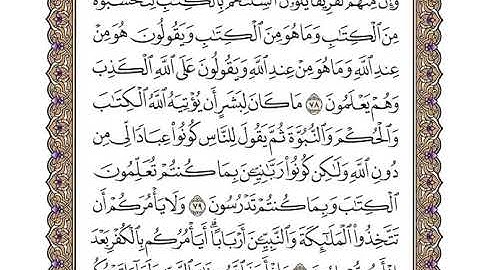 وَإِنَّ مِنْهُمْ لَفَرِيقًا يَلْوُۥنَ أَلْسِنَتَهُم بِٱلْكِتَٰبِ لِتَحْسَبُوهُ
مِنَ ٱلْكِتَٰبِ وَمَا هُوَ مِنَ ٱلْكِتَٰبِ وَيَقُولُونَ هُوَ مِنْ
عِندِ ٱللَّهِ وَمَا هُوَ مِنْ عِندِ ٱللَّهِ وَيَقُولُونَ عَلَى ٱللَّهِ ٱلْكَذِبَ
وَهُمْ يَعْلَمُونَ ٧٨ مَا كَانَ لِبَشَرٍ أَن يُؤْتِيَهُ ٱللَّهُ ٱلْكِتَٰبَ
وَٱلْحُكْمَ وَٱلنُّبُوَّةَ ثُمَّ يَقُولَ لِلنَّاسِ كُونُوا۟ عِبَادًا لِّى مِن
دُونِ ٱللَّهِ وَلَٰكِن كُونُوا۟ رَبَّٰنِيِّـۧنَ بِمَا كُنتُمْ تُعَلِّمُونَ
ٱلْكِتَٰبَ وَبِمَا كُنتُمْ تَدْرُسُونَ ٧٩ وَلَا يَأْمُرَكُمْ أَن
تَتَّخِذُوا۟ ٱلْمَلَٰٓئِكَةَ وَٱلنَّبِيِّـۧنَ أَرْبَابًا ۗ أَيَأْمُرُكُم بِٱلْكُفْرِ بَعْدَ